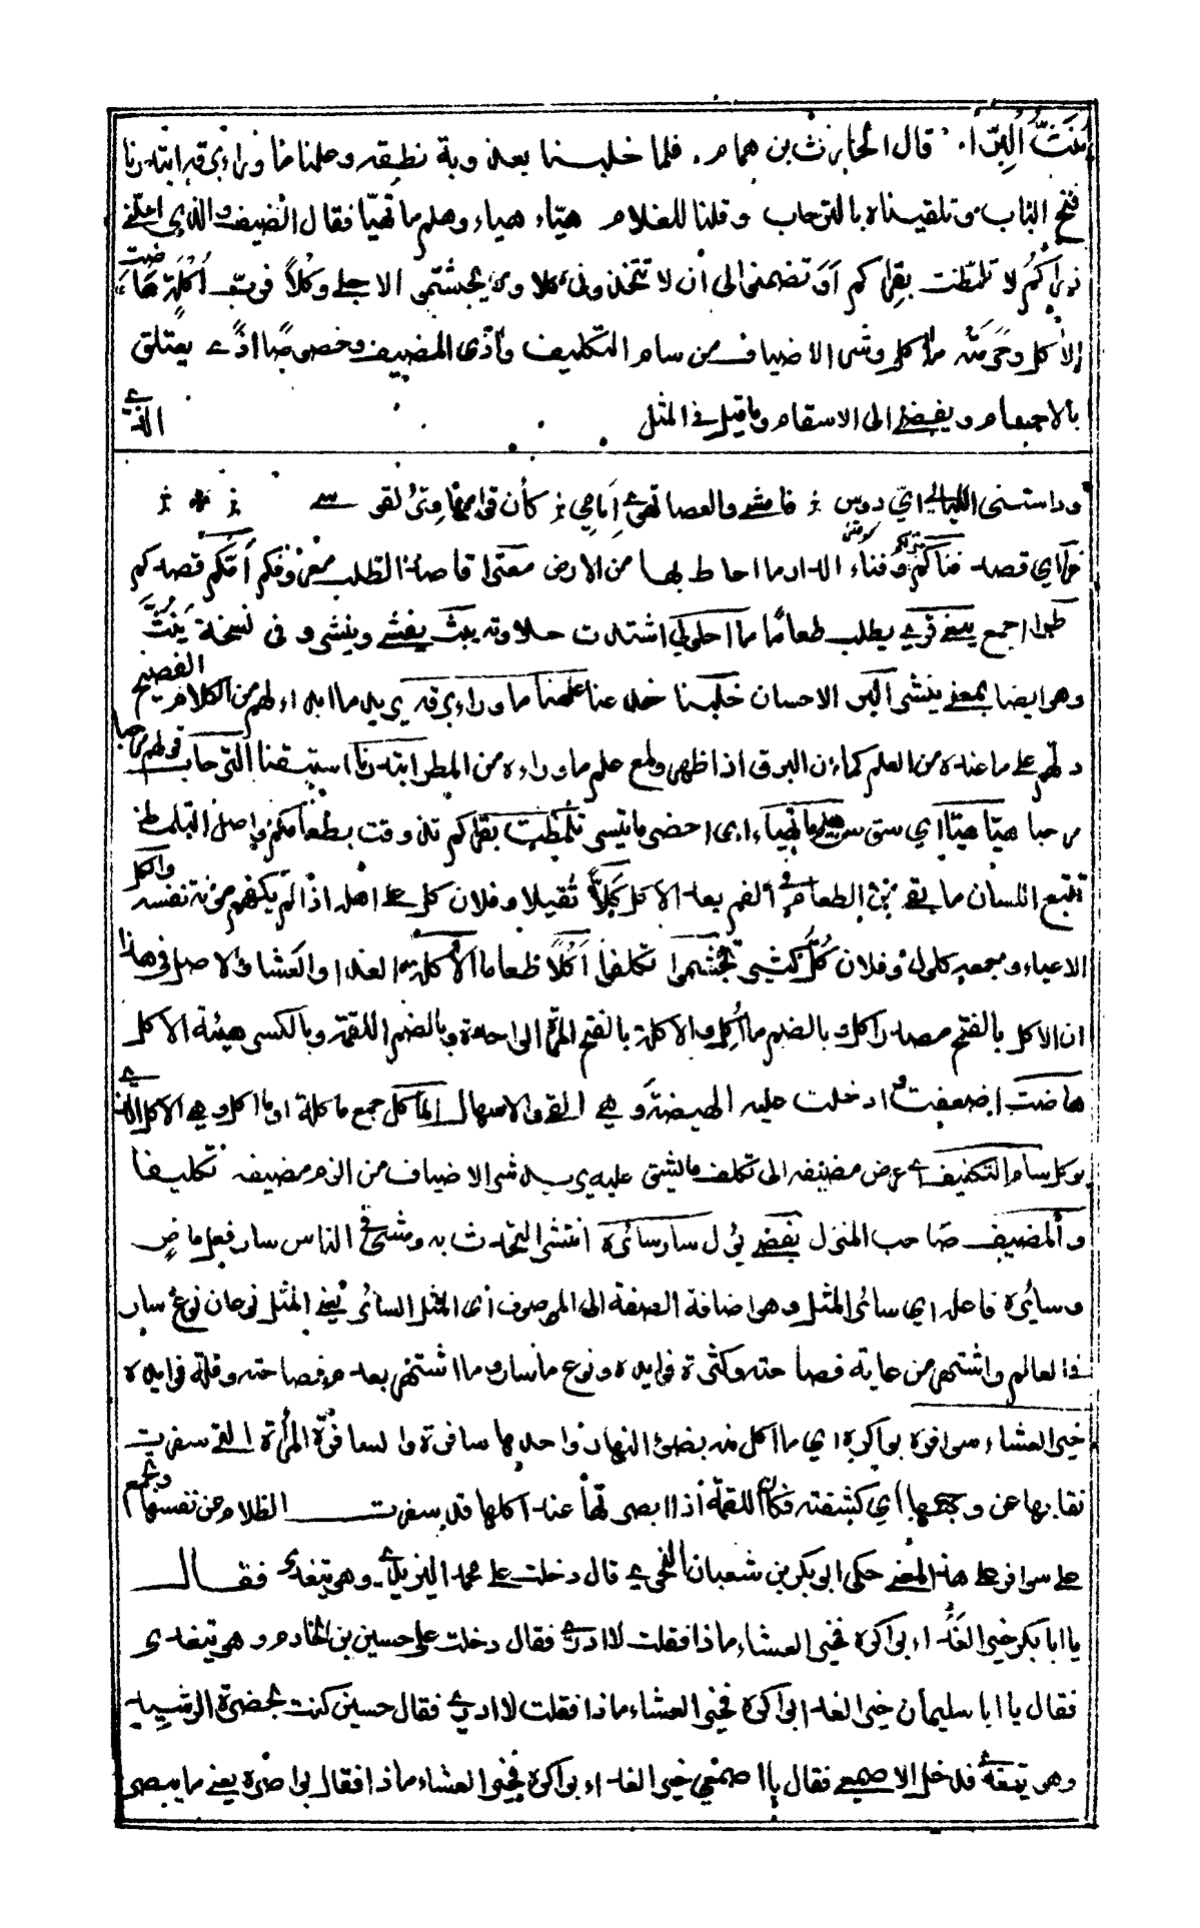 يَنُثُّ البِرَّا، قال الحارث بن همام، فلما خلبنا بعذوبة نطقه وعلمنا ما وراء برقه ابتدرنا
فتح الباب وتلقيناه بالترحاب وقلنا للغلام هيّاء هياء وهلم ما تهيّا فقال الضيف والذي احلّنى
ذراكم لا تلمّظت بقراكم أو تضمنوا الى ان لا تتخذونى كلا ولا تجشّموا لاجلى اُكلاً فرب أُكلة هاضت
الآكل وحَرَمَته مآكل وشر الاضياف من سام التكليف وآذى المضيف وخصوصًا اذًى يعتلق
بالاجسام ويفضى الى الاسقام وما قيل فى المثل الذى
قوله اى قصد فناكم وفناء الدار ما احاط بها من الارض معترا قاصدا لطلب معروفكم أمّكم قصدكم
طرا اجمع يبغى قرى يطلب طعامًا ما احلولى اشتدت حلاوته يبث يفشى وينشر و فى نسخة يَنُثّ
وهو ايضا بمعنى ينشر البر الاحسان خلبنا خدعنا علمنا ما وراء برقه يريد ما ابداه لهم من الكلام الفصيح
دلهم على ما عنده من العلم كما ان البرق اذا ظهر ولمع علم ما وراءه من المطر ابتدرنا استبقنا الترحاب قولهم مرحبا
مرحبا هيّا هيّا اى سق سق هلم ما تهياء اى احضر ما تيسر تلمظت بقراكم تذوقت بطعامكم واصل التلمظ
تتبع اللسان ما بقى من الطعام فى الفم بعد الاكل كَلّاً ثقيلا وفلان كل على اهله اذا لم يكفهم مؤنة نفسه والكل
الاعياء وجمعه كلول وفلان كُلّ كثير تجشموا تكلفوا اُكُلاً طعاما الاكلة الغداء والعشاء والاصل فى هذا
ان الاكل بالفتح مصدر اكل وبالضم ما اُكل والاكلة بالفتح المرة الواحدة وبالضم اللقمة وبالكسر هيئة الاكل
هاضت اضعفت وادخلت عليه الهيضة وهى القى والاسهال المآكل جمع ماكلة او ماكل وهى الاكل الذى
يوكل سام التكليف اى عرض مضيفه الى تكلف ما ليشق عليه يريد شر الاضياف من الزم مضيفه تكليفا
والمضيف صاحب المنزل يفضى يؤل سار سائره انتشر التحدث به ومشى فى الناس سار فعل ماض
وسائره فاعله اى سائر المثل وهو اضافة الصفة الى الموصوف اى المثل السائر يعنى المثل نوعان نوع سار
فى العالم واشتهر من غاية فصاحته وكثرة فوايده ونوع ما سار وما اشتهر بعدم فصاحته وقلة فوايده
خير العشاء سوافره بواكره اى ما اكل منه بضوء النهار واحدها سافرة والسافرة المرأة التى سفرت
نقابها عن وجهها اى كشفته فكأن اللقمة اذا ابصرتها عند اكلها قد سفرت الظلام عن نفسها وتجمع
على سوافر على هذا المعنى حكى ابو بكر بن شعبان النحوى قال دخلت على محمد اليزيدى وهو يتغدى فقال
يا ابا بكر خير الغداء بواكره فخير العشاء ماذا فقلت لا ادرى فقال دخلت على حسين بن الخادم وهو يتغدى
فقال يا ابا سليمان خير الغداء بواكره فخير العشاء ماذا فقلت لا ادرى فقال حسين كنت بحضرة الرشيد
وهو يتغدى فدخل الاصمعى فقال يا اصمعى خير الغداء بواكره فخير العشاء ماذا فقال بواصره يعنى ما يبصر